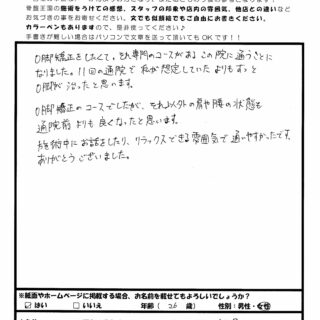 骨盤王国の施術をうけての感想、スタッフの印象や店内の雰囲気、他店との違いなど
お気づきの事をお書きください。文でも似顔絵でもご自由にお書きください。
カラーペンもありますので、是非使ってください♪
手書きが難しい場合はパソコンで文章を送って頂いてもOKです!!
O脚矯正をしたくて、それ専門のコースがあるこの院に通うことに
なりました。11回の通院で私が想定していたよりもずっと
O脚が治ったと思います。
O脚矯正のコースでしたが、それ以外の肩や腰の状態も
通院前よりも良くなったと思います。
施術中にお話をしたり、リラックスできる雰囲気で通いやすかったです。
ありがとうございました。
※紙面やホームページに掲載する場合、お名前を載せてもよろしいでしょうか?
☑はい □いいえ 年齢( 26 歳) 性別:男性・女性